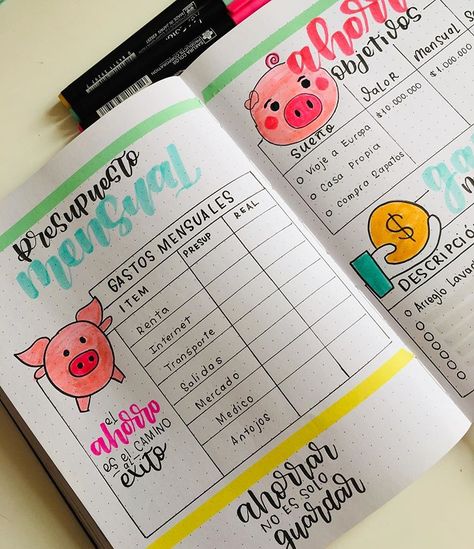 presupuesto
mensual
GASTOS MENSUALES
ITEM PRESUP REAL
Renta
Internet
Transporte
Salidas
Mercado
Medico
Antojos
el
ahorro
es el CAMINO
al
exito
ahorrar
NO ES SOLO
guardar
ahorro
objetivos
sueño valor mensual
Viaje a Europa $10.000.000
Casa Propia
compra Zapatos
$
DESCRIPCIÓ